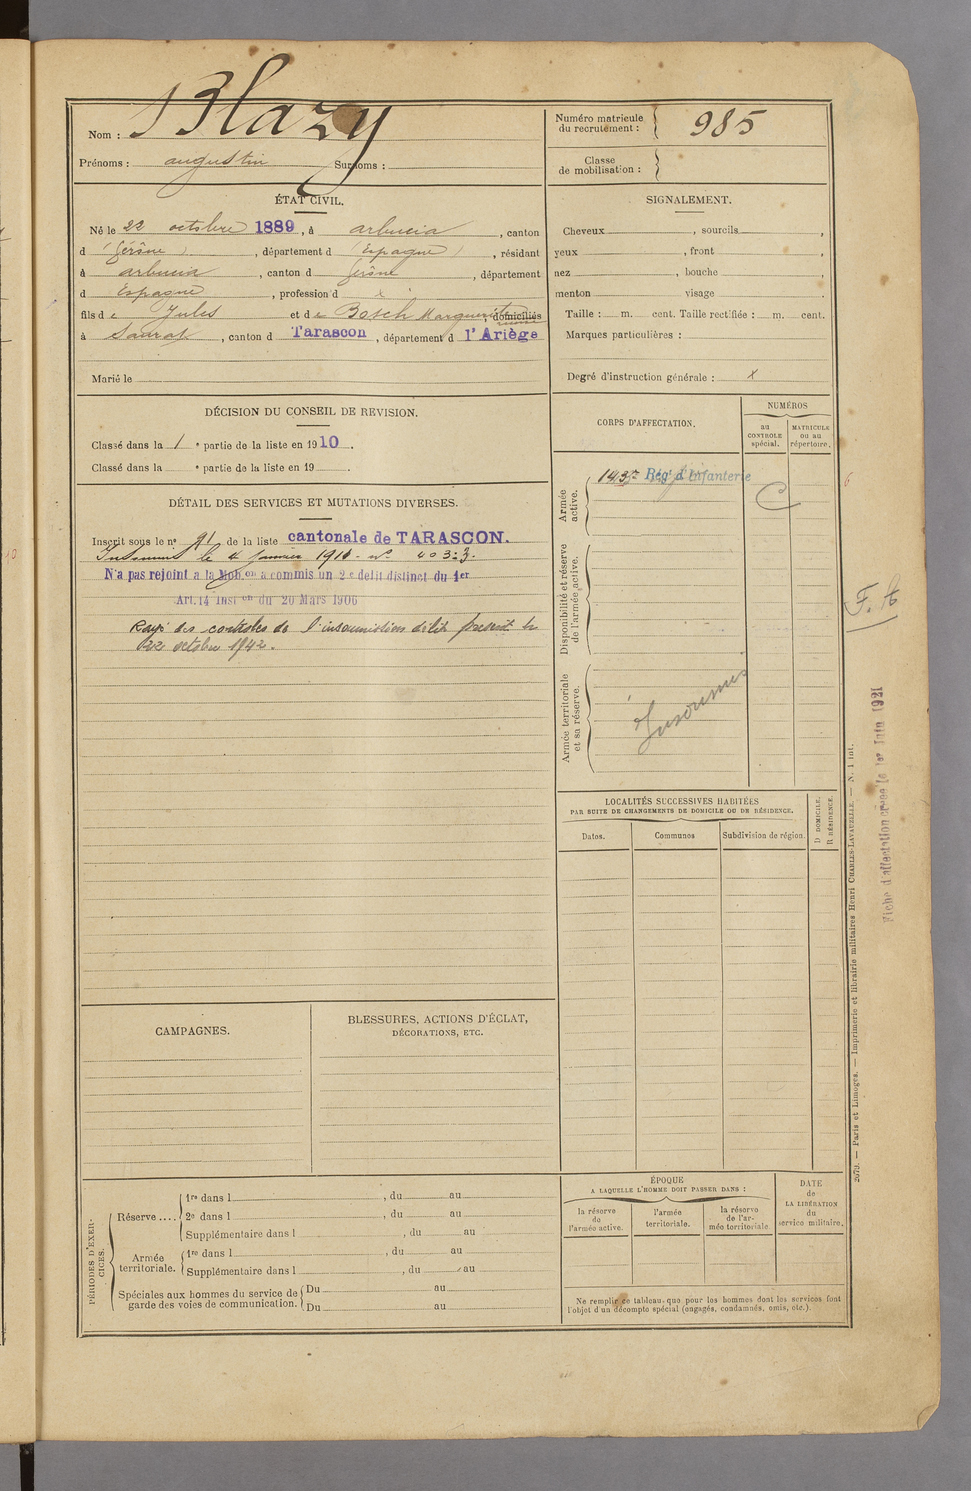 Nom : Blazy
Prénoms : augustin Surnoms :
Numéro matricule du recrutement : 985
Classe de mobilisation :
ÉTAT CIVIL.
Né le 22 octobre 1889, à arbucia, canton
d (Gérône), département d (Espagne), résidant
à arbucia, canton d Gérône, département
d Espagne, profession d x
fils de Jules et de Bosch Marguerite, domiciliés
à Saurat, canton d Tarascon, département d l'Ariège
Marié le
SIGNALEMENT.
Cheveux , sourcils ,
yeux , front ,
nez , bouche ,
menton visage
Taille : m. cent. Taille rectifiée : m. cent.
Marques particulières :
Degré d'instruction générale : x
DÉCISION DU CONSEIL DE REVISION.
Classé dans la 1e partie de la liste en 1910.
Classé dans la e partie de la liste en 19 .
DÉTAIL DES SERVICES ET MUTATIONS DIVERSES.
Inscrit sous le no 91 de la liste cantonale de TARASCON.
Insoumis le 4 Janvier 1911 - no
N'a pas rejoint a la Mob.on a commis un 2e delit distinct du 1er
Art.14 Inst on du 20 Mars 1906
Rayé des contrôles de l'insoumission délit prescrit le
22 octobre 1942.
CORPS D'AFFECTATION.
NUMÉROS
au CONTROLE spécial.
MATRICULE ou au répertoire.
Armée active.
143e Rég' d'Infanterie
Disponibilité et réserve de l'armée active.
Armée territoriale et sa réserve.
Insoumis
F. A
Fiche d'affectation créée le 1er Juin 1921
LOCALITÉS SUCCESSIVES HABITÉES
PAR SUITE DE CHANGEMENTS DE DOMICILE OU DE RÉSIDENCE.
Dates.
Communes
Subdivision de région.
D DOMICILE.
R RÉSIDENCE.
CAMPAGNES.
BLESSURES, ACTIONS D'ÉCLAT,
DÉCORATIONS, ETC.
PÉRIODES D'EXERCICES.
Réserve ....
1re dans l , du au
2e dans l , du au
Supplémentaire dans l , du au
Armée territoriale.
1re dans l , du au
Supplémentaire dans l , du au
Spéciales aux hommes du service de garde des voies de communication.
Du au
Du au
ÉPOQUE
A LAQUELLE L'HOMME DOIT PASSER DANS :
la réserve de l'armée active.
l'armée territoriale.
la réserve de l'armée territoriale
DATE de LA LIBÉRATION du service militaire.
Ne remplir ce tableau que pour les hommes dont les services font
l'objet d'un décompte spécial (engagés, condamnés, omis, etc.).
2079. — Paris et Limoges. — Imprimerie et librairie militaires Henri CHARLES-LAVAUZELLE. — N. 1 int.